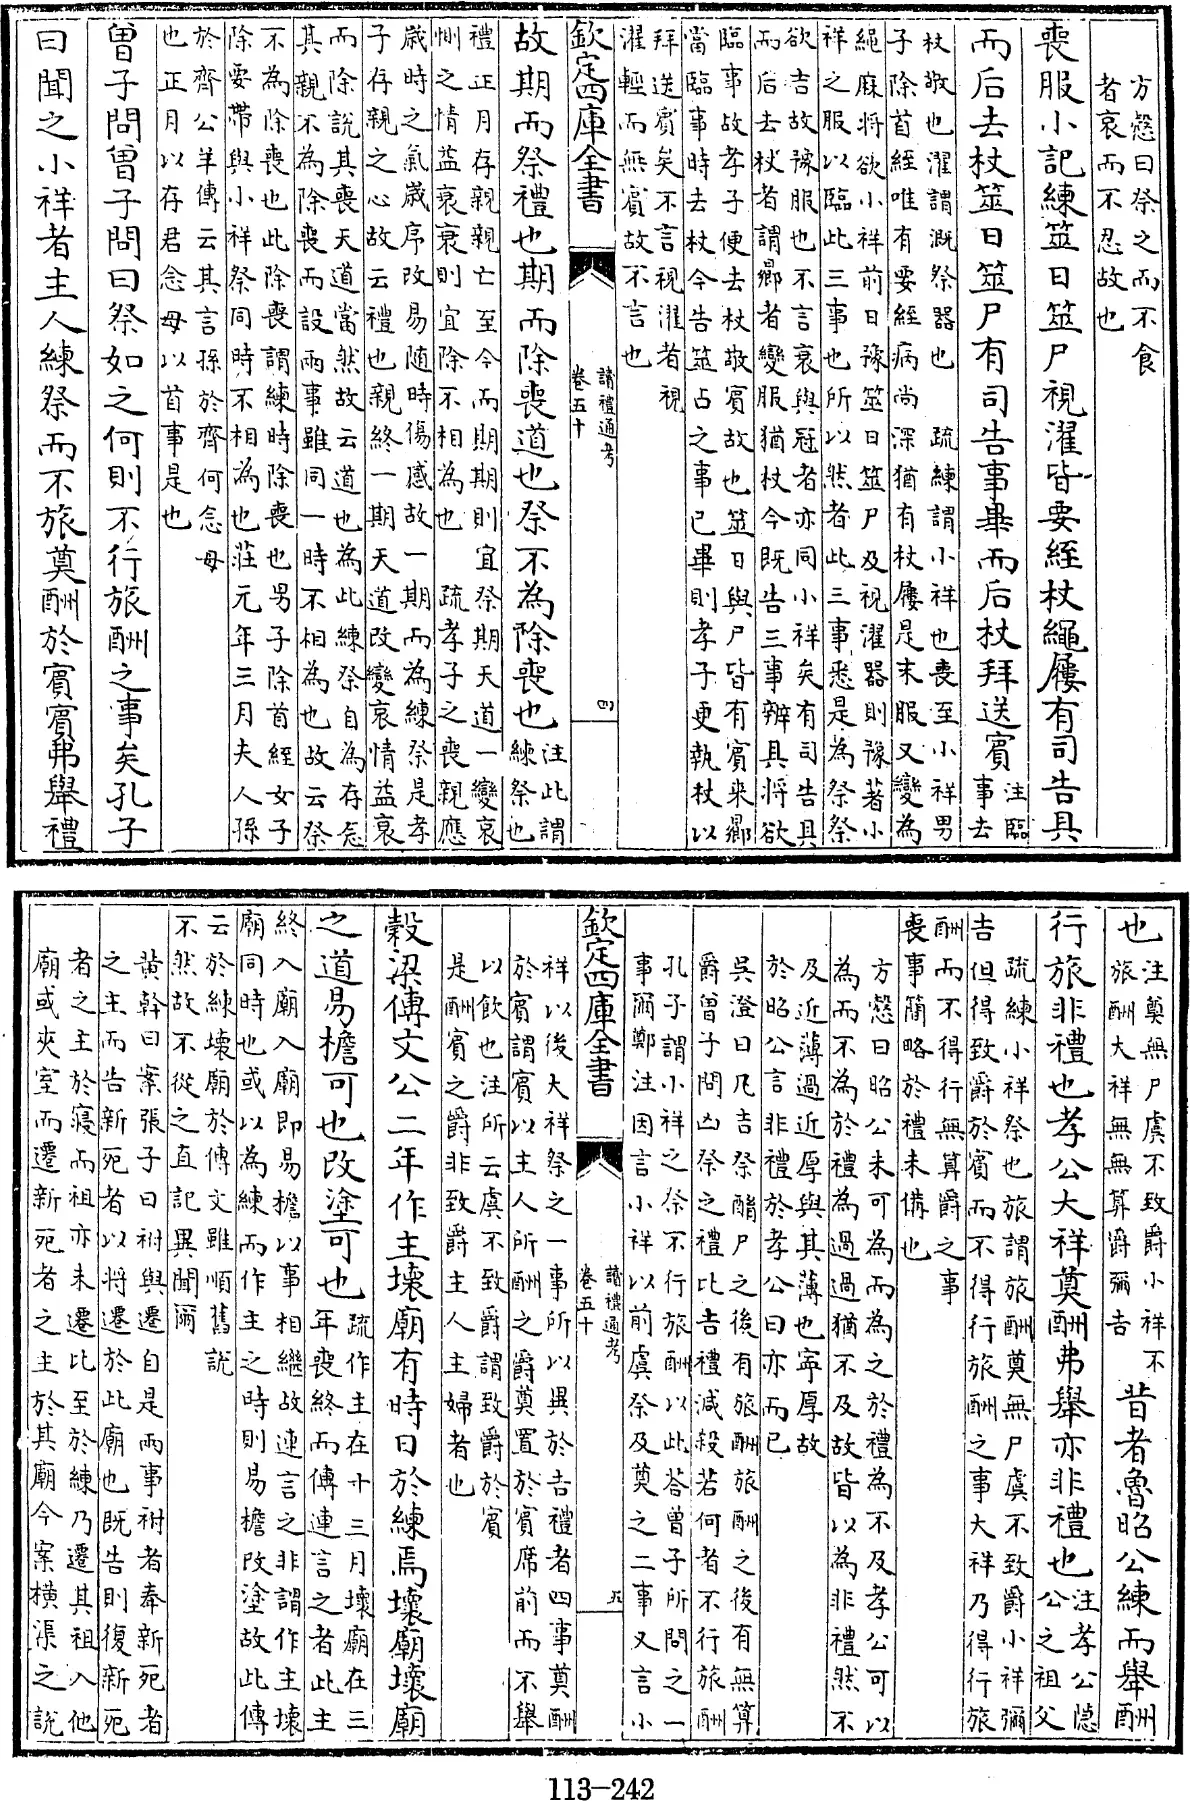 方慤曰祭之而不食
者哀而不忍故也
喪服小記練筮日筮尸視濯皆要絰杖繩屨有司告具
而后去杖筮日筮尸有司告事畢而后杖拜送賓 注臨
事去
杖敬也濯謂溉祭器也 疏練謂小祥也喪至小祥男
子除首絰唯有要絰病尚深猶有杖屨是末服又變為
繩麻將欲小祥前日豫筮日筮尸及視濯器則豫著小
祥之服以臨此三事也所以然者此三事悉是為祭祭
欲吉故豫服也不言衰與冠者亦同小祥矣有司告具
而后去杖者謂鄉者變服猶杖今既告三事辦具將欲
臨事故孝子便去杖敬賓故也筮日與尸皆有賓來鄉
當臨事時去杖今告筮占之事已畢則孝子更執杖以
拜送賓矣不言視濯者視
濯輕而無賓故不言也
欽定四庫全書
讀禮通考
卷五十
四
故期而祭禮也期而除喪道也祭不為除喪也 注此謂
練祭也
禮正月存親親亡至今而期期則宜祭期天道一變哀
惻之情益衰衰則宜除不相為也 疏孝子之喪親應
歲時之氣歲序改易隨時傷感故一期而為練祭是孝
子存親之心故云禮也親終一期天道改變哀情益衰
而除說其喪天道當然故云道也為此練祭自為存念
其親不為除喪而設兩事雖同一時不相為也故云祭
不為除喪也此除喪謂練時除喪也男子除首絰女子
除要帶與小祥祭同時不相為也莊元年三月夫人孫
於齊公羊傳云其言孫於齊何念母
也正月以存君念母以首事是也
曾子問曾子問曰祭如之何則不行旅酬之事矣孔子
曰聞之小祥者主人練祭而不旅奠酬於賓賓弗舉禮
也 注奠無尸虞不致爵小祥不
旅酬大祥無無算爵彌吉 昔者魯昭公練而舉酬
行旅非禮也孝公大祥奠酬弗舉亦非禮也 注孝公隱
公之祖父
疏練小祥祭也旅謂旅酬奠無尸虞不致爵小祥彌
吉但得致爵於賓而不得行旅酬之事大祥乃得行旅
酬而不得行無算爵之事
喪事簡略於禮未備也
方慤曰昭公未可為而為之於禮為不及孝公可以
為而不為於禮為過過猶不及故皆以為非禮然不
及近薄過近厚與其薄也寧厚故
於昭公言非禮於孝公曰亦而已
吳澄曰凡吉祭酳尸之後有旅酬旅酬之後有無算
爵曾子問凶祭之禮比吉禮減殺若何者不行旅酬
孔子謂小祥之祭不行旅酬以此答曾子所問之一
事爾鄭注因言小祥以前虞祭及奠之二事又言小
欽定四庫全書
讀禮通考
卷五十
五
祥以後大祥祭之一事所以異於吉禮者四事奠酬
於賓謂賓以主人所酬之爵奠置於賓席前而不舉
以飲也注所云虞不致爵謂致爵於賓
是酬賓之爵非致爵主人主婦者也
榖梁傳文公二年作主壞廟有時日於練焉壞廟壞廟
之道易檐可也改塗可也 疏作主在十三月壞廟在三
年喪終而傳連言之者此主
終入廟入廟即易檐以事相繼故連言之非謂作主壞
廟同時也或以為練而作主之時則易檐改塗故此傳
云於練壞廟於傳文雖順舊説
不然故不從之直記異聞爾
黄幹曰案張子曰祔與遷自是兩事祔者奉新死者
之主而告新死者以將遷於此廟也既告則復新死
者之主於寢而祖亦未遷比至於練乃遷其祖入他
廟或夾室而遷新死者之主於其廟今案横渠之説
113-242